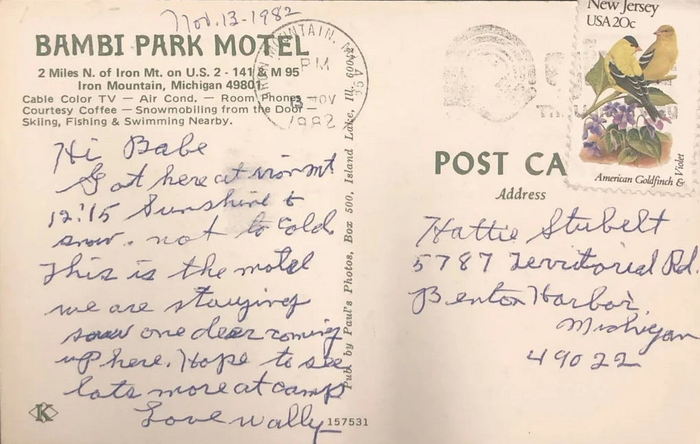 Nov. 13-1982
BAMBI PARK MOTEL
2 Miles N. of Iron Mt. on U.S. 2 - 141 & M 95
Iron Mountain, Michigan 49801
Cable Color TV — Air Cond. — Room Phones
Courtesy Coffee — Snowmobiling from the Door
Skiing, Fishing & Swimming Nearby.
Hi Babe
Got here at iron mt
12:15 Sunshine &
snow. not to cold
This is the motel
we are staying
saw one deer coming
up here. Hope to see
lots more at camp
Love Wally
157531
Pub by Paul's Photos, Box 500, Island Lake, Ill. 60042
MOUNTAIN, M
PM
13 NOV
1982
New Jersey
USA 20c
American Goldfinch & Violet
POST CA
Address
Hattie Stubelt
5787 Territorial Rd.
Benton Harbor,
Michigan
49022